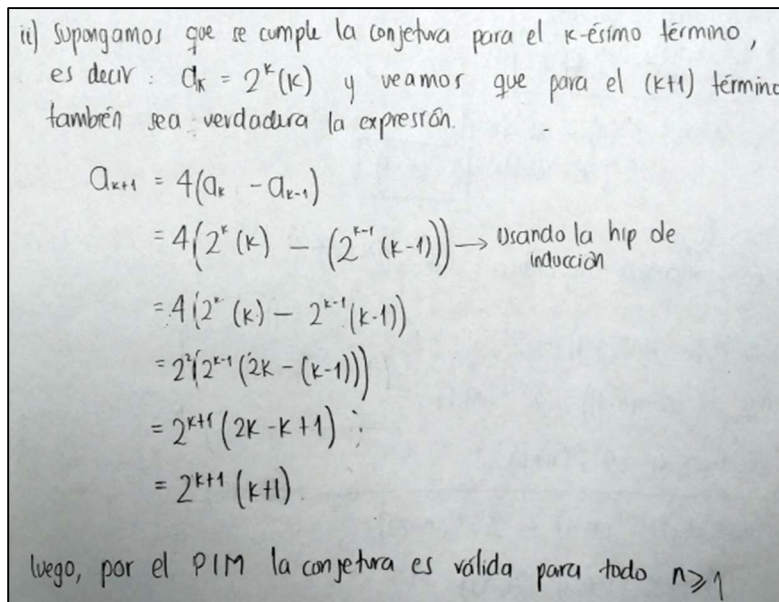 ii) Supongamos que se cumple la conjetura para el k-ésimo término,
es decir: a_k = 2^k(k) y veamos que para el (k+1) término
también sea verdadera la expresión.
a_{k+1} = 4(a_k - a_{k-1})
= 4(2^k(k) - (2^{k-1}(k-1))) → Usando la hip de
inducción
= 4(2^k(k) - 2^{k-1}(k-1))
= 2^2(2^{k-1}(2k-(k-1)))
= 2^{k+1}(2k-k+1)
= 2^{k+1}(k+1)
luego, por el PIM la conjetura es válida para todo n⩾1